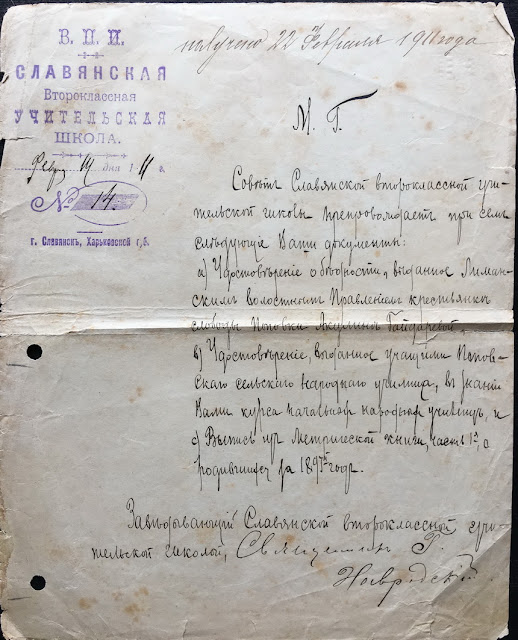 В. П. И.
СЛАВЯНСКАЯ
Второклассная
УЧИТЕЛЬСКАЯ
ШКОЛА.
Февр. 14 дня 1911 г.
№ 14.
г. Славянскъ, Харьковской губ.
получено 22 Февраля 1911 года
М. Г.
Совѣтъ Славянской второклассной учи-
тельской школы препровождаетъ при семъ
слѣдующіе Ваши документы:
а) Удостовѣреніе о бѣдности, выданное Лиман-
скимъ волостнымъ Правленіемъ крестьянкѣ
слободы Поповки Акулинѣ Гайдаревой,
в) Удостовѣреніе, выданное учащими Попов-
скаго сельскаго народнаго училища, въ
Вами курса начальнаго народнаго училища, и
с) Выпись изъ Метрической книги, часть 1ая, о
родившихся за 1897й годъ.
Завѣдывающій Славянской второклассной учи-
тельской школой, Священникъ Г.